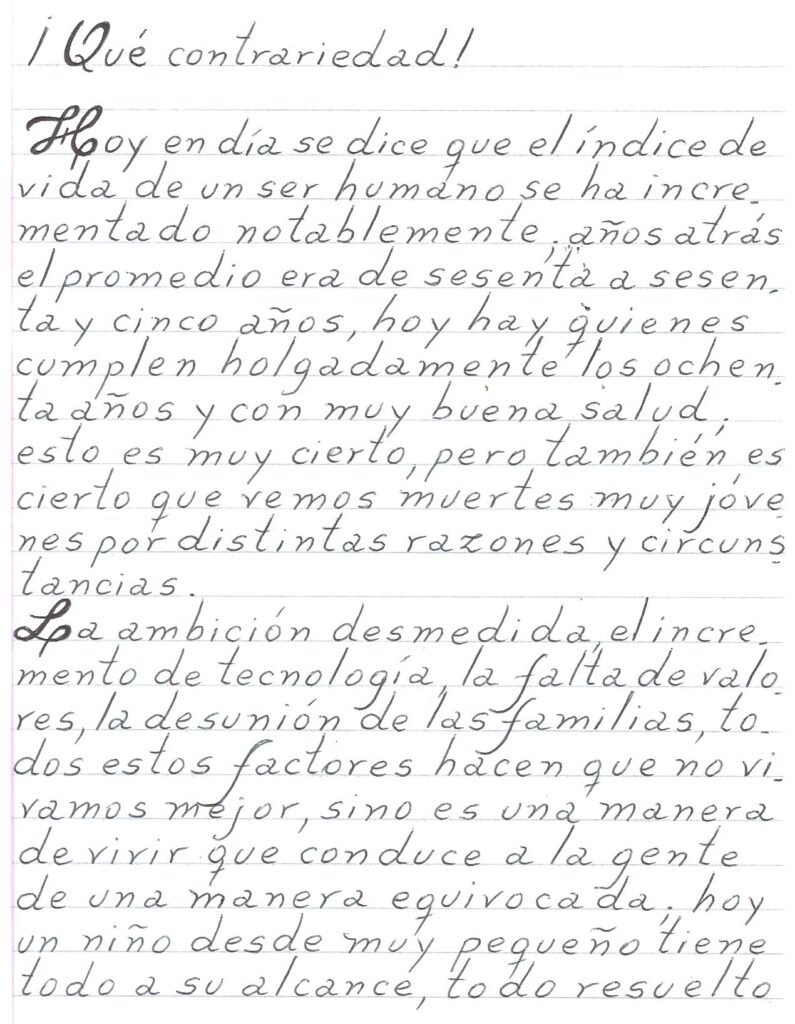 ¡Qué contrariedad!
Hoy en día se dice que el índice de
vida de un ser humano se ha incre-
mentado notablemente; años atrás
el promedio era de sesenta a sesen-
ta y cinco años, hoy hay quienes
cumplen holgadamente los ochen-
ta años y con muy buena salud;
esto es muy cierto, pero también es
cierto que vemos muertes muy jóve
nes por distintas razones y circuns
tancias.
La ambición desmedida, el incre-
mento de tecnología, la falta de valo-
res, la desunión de las familias, to-
dos estos factores hacen que no vi-
vamos mejor, sino es una manera
de vivir que conduce a la gente
de una manera equivocada; hoy
un niño desde muy pequeño tiene
todo a su alcance, todo resuelto